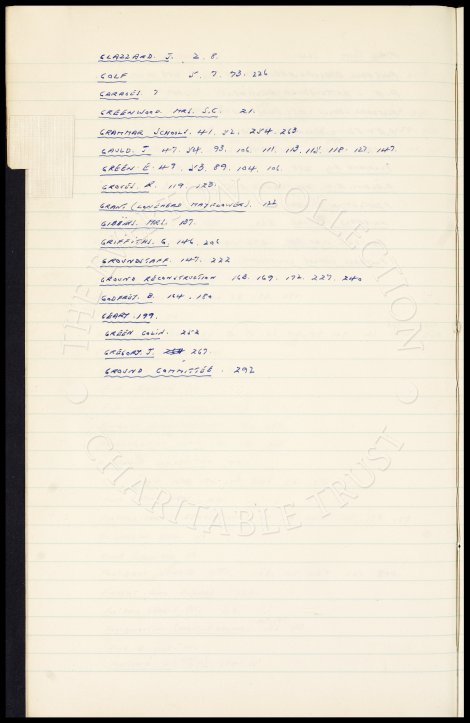 GLAZZARD. J. 2. 8.
GOLF 5. 7. 93. 226
GARAGES. 7
GREENWOOD. MRS. S.G. 21.
GRAMMAR SCHOOLS. 41. 52. 254. 263
GAULD. J 47. 54. 93. 106. 111. 113. 115. 118. 127. 147.
GREEN. E. 49. 53. 89. 104. 106.
GROVES. R. 119. 123.
GRANT (LONGHERD MAYFLOWER). 122
GIBBINS. MRS. 137.
GRIFFITHS. G. 146. 206
GROUNDSTAFF. 147. 222
GROUND RECONSTRUCTION 168. 169. 172. 227. 240
GODFREY. B. 184. 180
GEARY. 199.
GREEN COLIN. 252
GREGORY. J. 267.
GROUND COMMITTEE. 292
THE COLLECTION
CHARITABLE TRUST